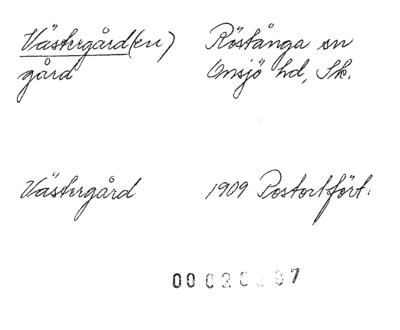 Västergård(en) Röstånga sn
gård Onsjö hd, Sk.
Västergård 1909 Postortfört.